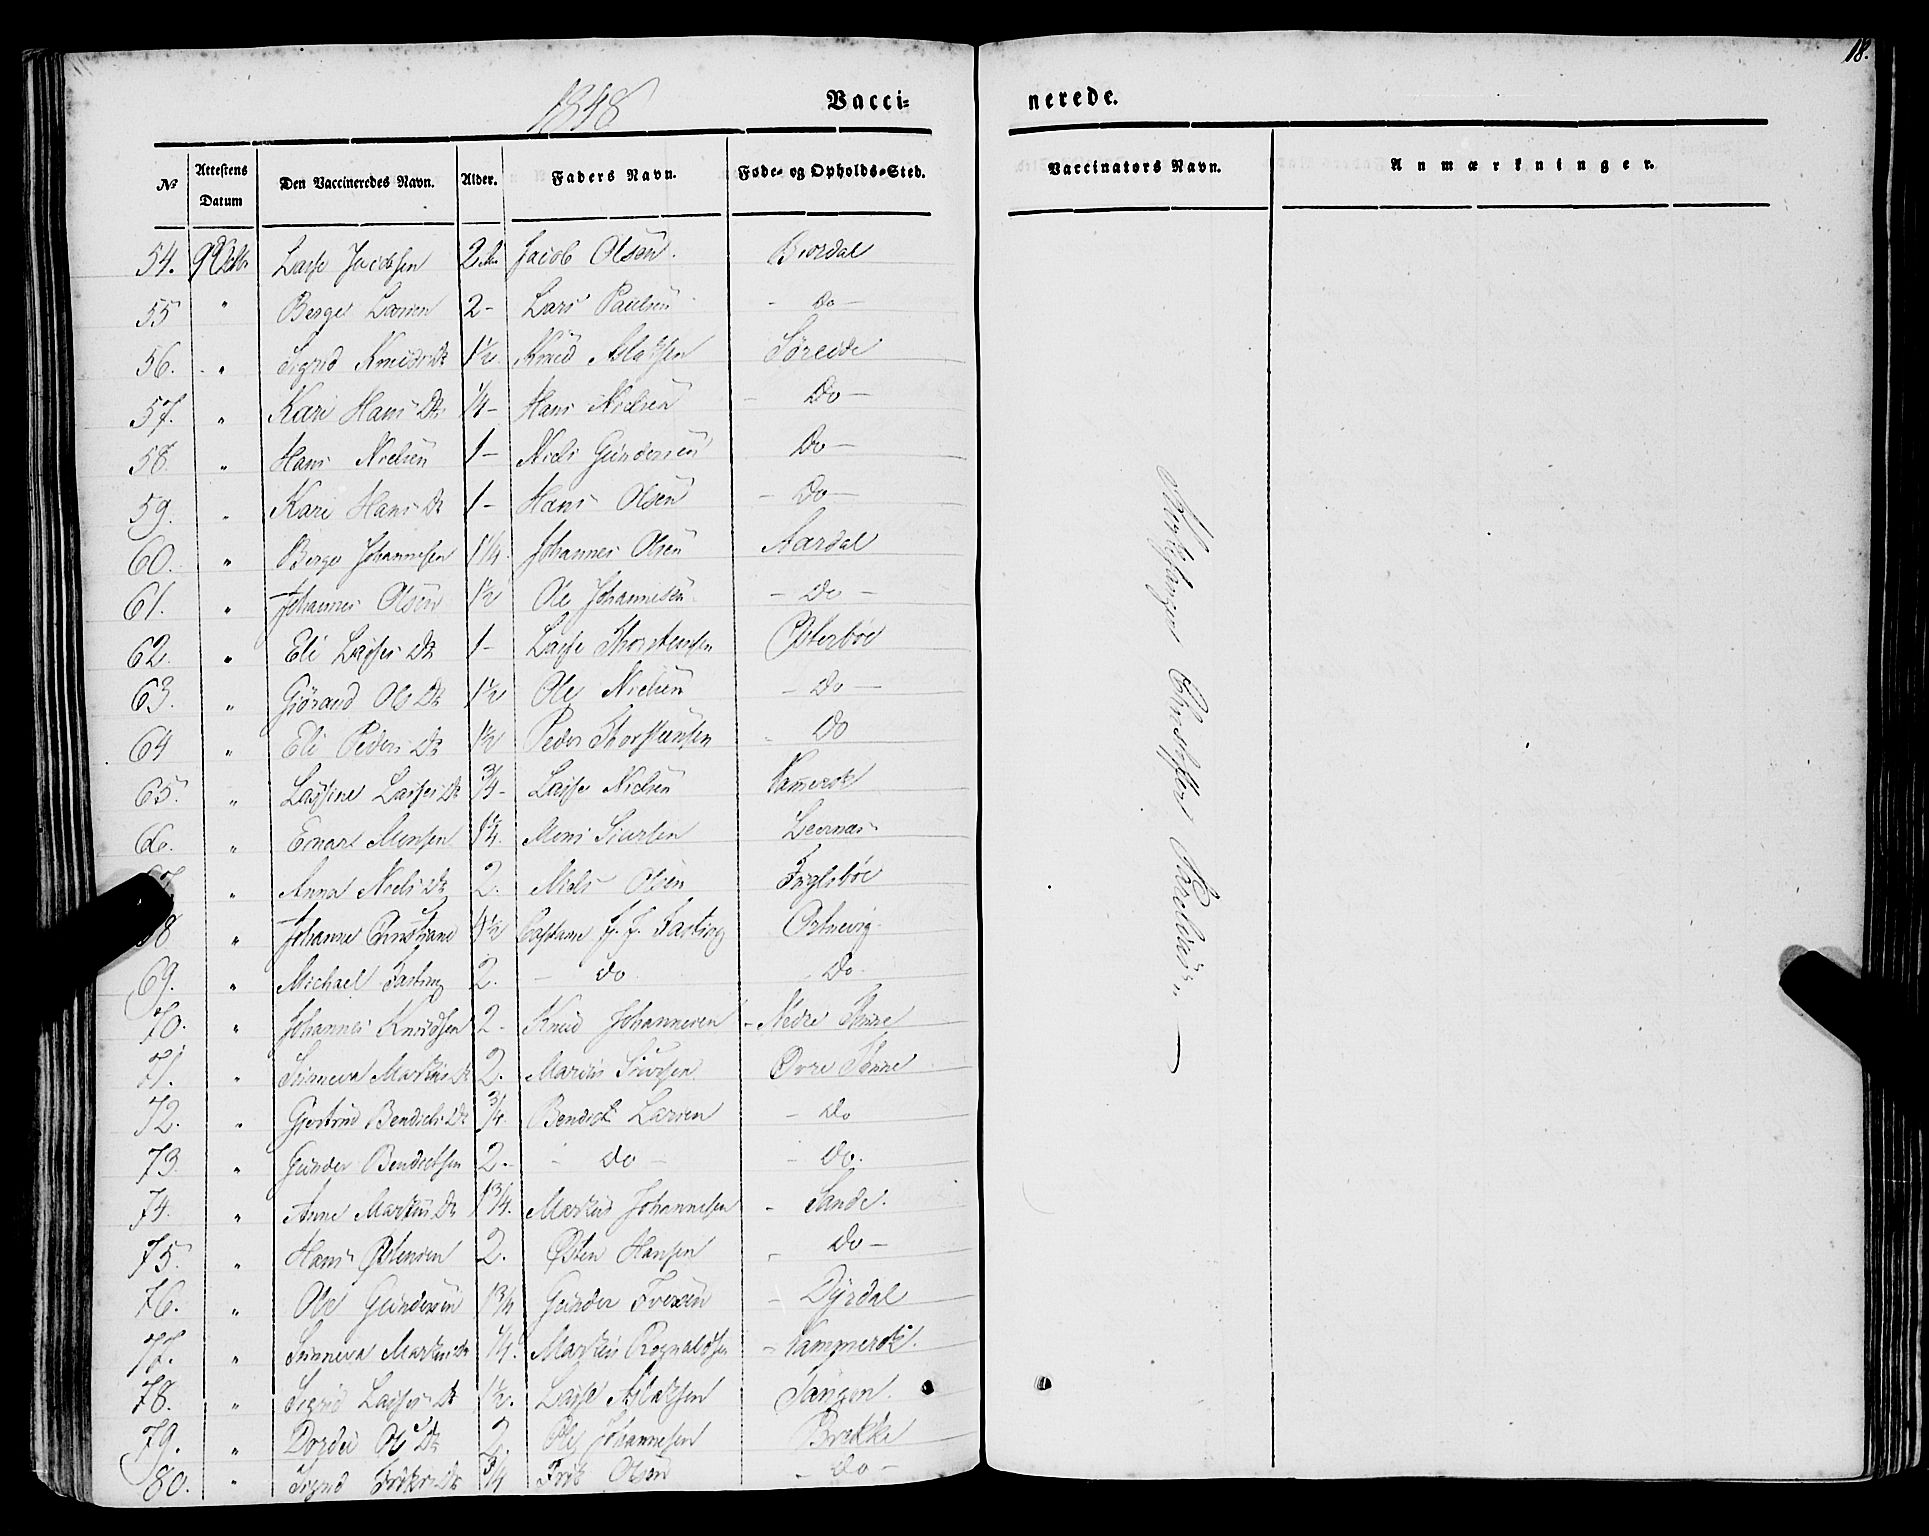 18.
1848 Vacci- nerede.
№ Attestens Datum Den Vaccineredes Navn. Alder. Faders Navn. Føde- og Opholds-Sted. Vaccinators Navn. Anmærkninger.
54. 9 Octbr Lasse Jacobsen 2 Jacob Olsen. Biordal
55 " Berge Larsen 2 - Lars Paulsen - Do -
56. " Sigrid Knuds Dr 1½. Knud Aslaksen Søreide
57. " Kari Hans Dr ¼ - Hans Nielsen - Do -
58. " Hans Nielsen 1 - Niels Gundersen Do -
59. " Kari Hans Dr 1 - Hans Olsen - Do -
60. " Berge Johannesen 1¼. Johannes Olsen Aardal
61. " Johannes Olsen 1½ Ole Johannesen - Do -
62. " Eli Lasses Dr 1 - Lasse Thorstensen Østerbøe
63. " Giøraud Ols Dr 1½ Ole Nielsen - Do -
64 " Eli Peders Dr 1½ Peder Thorstensen - Do
65. " Lassine Lasses Dr ¾ - Lasse Nielsen
66. " Monsen Mons Leernæs
" Anna Niels Dr 2. Niels Olsen Fuglebøe
68 " Johanne Christiane Captain F. J. Fasting Ortnevig
69. " Michael Fasting 2. - do Do.
70. " Johannes Knudsen 2. Knud Johannesen - Nedre
71. " Sinneva Markus Dr 2. Øvre
72. " Giertrud Bendicts Dr ¾. Bendict Larsen - Do
73. " Gunder Bendictsen 2. - do - - Do.
74. " Anne Markus Dr 1¾. Markus Johannesen - Sande.
75. " Hans Østensen 2. Østen Hansen - Do -
76. " Ole Gundersen 1¾ Gunder Iversen - Dyrdal
77. " Sinneva Markus Dr ¼. Markus Rognaldsen
78. " Sigrid Lasses Dr 1½. Lasse Aslaksen Tangen.
79. " Dordei Ols Dr 2. Ole Johannesen Brekke
80. " Sigrid Eriks Dr ¾ Erik Olsen - Do -
Christopher